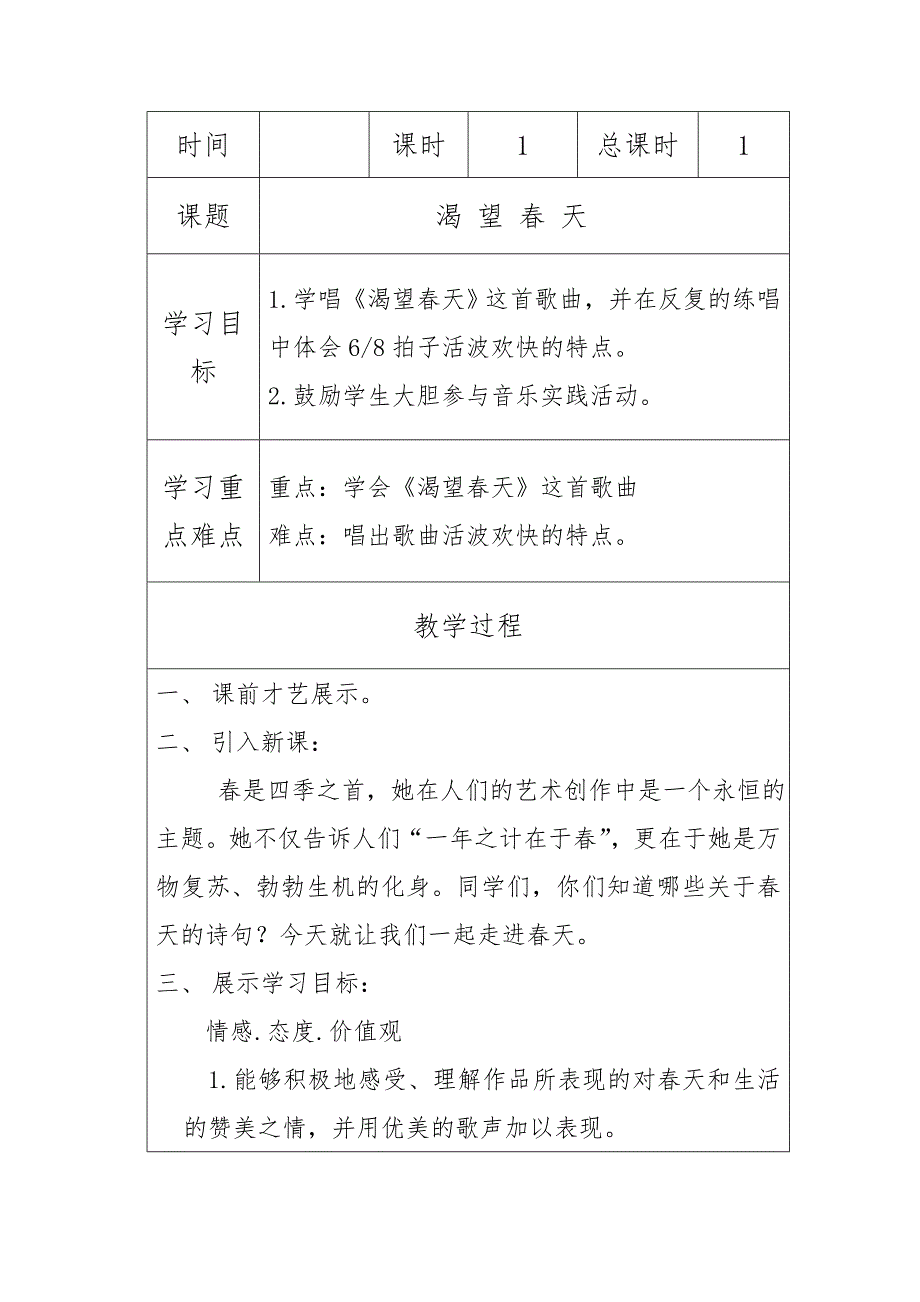 时间 课时 1 总课时 1
课题 渴 望 春 天
学习目
标
1.学唱《渴望春天》这首歌曲，并在反复的练唱
中体会6/8拍子活波欢快的特点。
2.鼓励学生大胆参与音乐实践活动。
学习重
点难点
重点：学会《渴望春天》这首歌曲
难点：唱出歌曲活波欢快的特点。
教学过程
一、 课前才艺展示。
二、 引入新课：
春是四季之首，她在人们的艺术创作中是一个永恒的
主题。她不仅告诉人们“一年之计在于春”，更在于她是万
物复苏、勃勃生机的化身。同学们，你们知道哪些关于春
天的诗句？今天就让我们一起走进春天。
三、 展示学习目标：
情感.态度.价值观
1.能够积极地感受、理解作品所表现的对春天和生活
的赞美之情，并用优美的歌声加以表现。